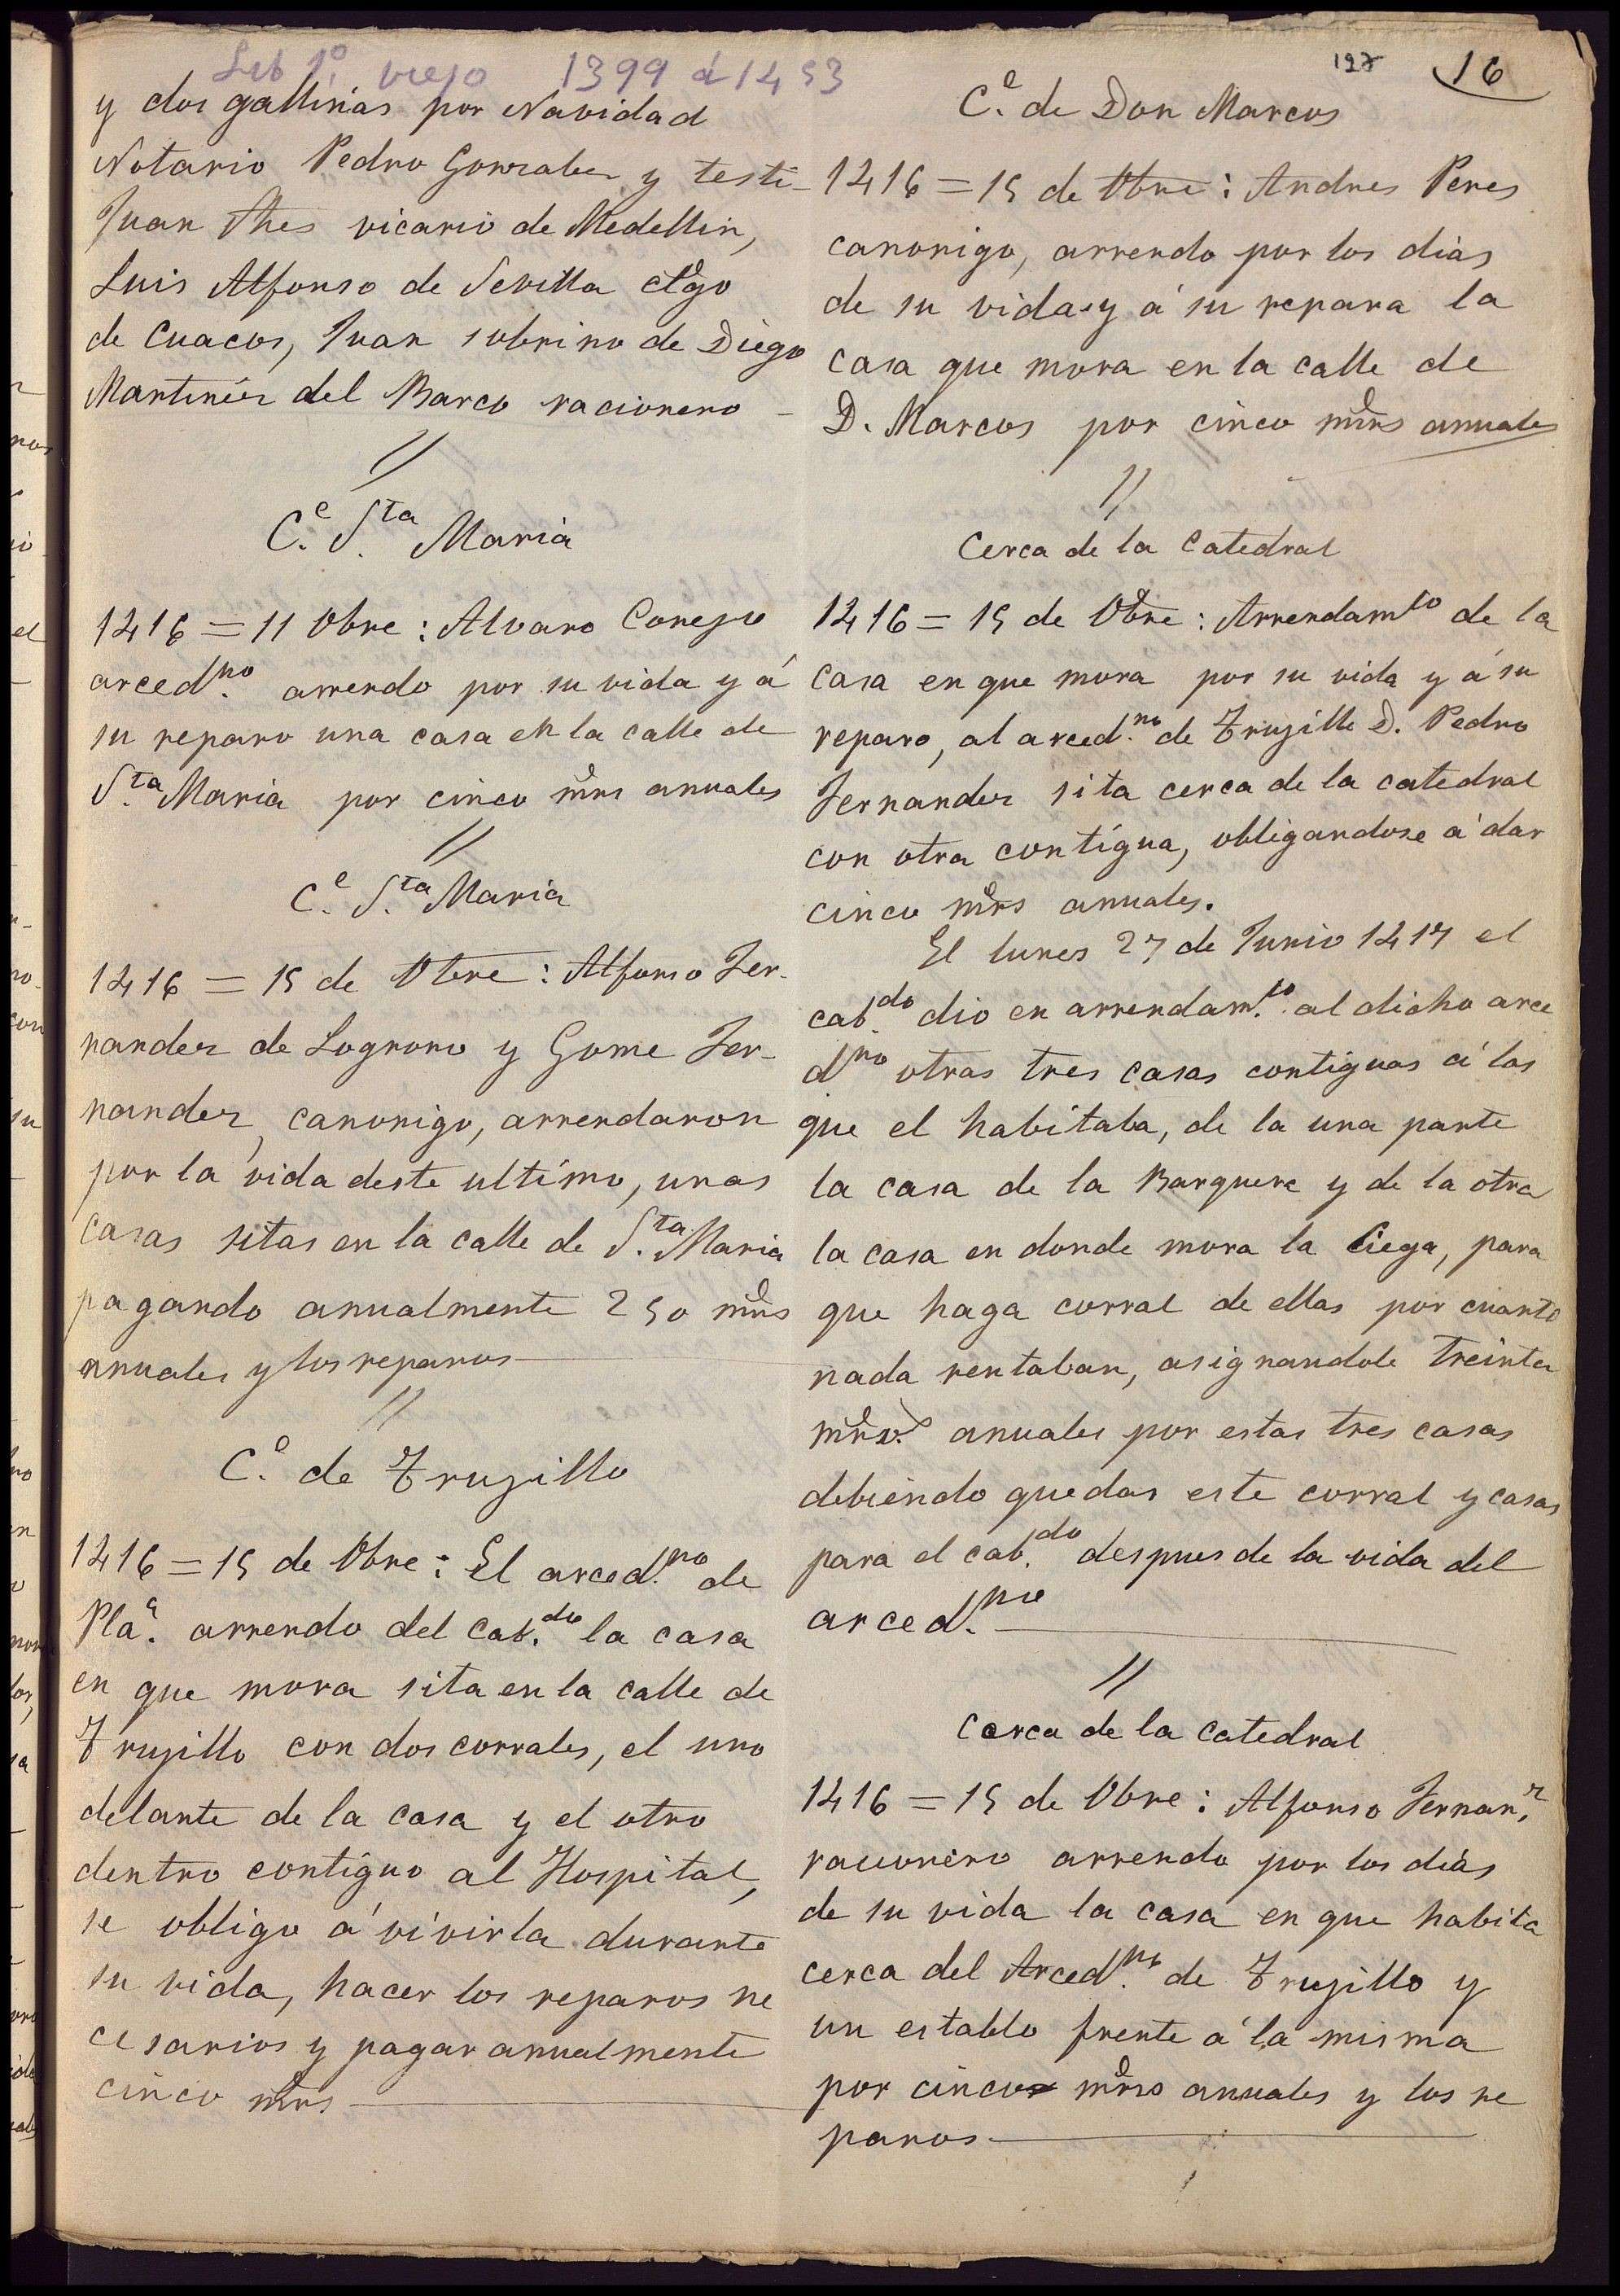 Lib 1º viejo 1399 a 1453
127 16
y dos gallinas por Navidad
Notario Pedro Gonzalez y testi-
Juan Mes vicario de Medellin,
Luis Alfonso de Sevilla clgo
de Cuacos, Juan sobrino de Diego
Martinez del Barco racionero -
//
C.e S.ta Maria
1416 = 11 Obre: Alvaro Conejo
arced.no arrendo por su vida y á
su reparo una casa en la calle de
S.ta Maria por cinco mrs anuales
//
C.e S.ta Maria
1416 = 15 de Obre: Alfonso Fer-
nandez de Logrono y Gome Fer-
nandez, canonigo, arrendaron
por la vida deste ultimo, unas
casas sitas en la calle de S.ta Maria
pagando anualmente 250 mrs
anuales y los reparos
//
C.e de Trujillo
1416 = 15 de Obre: El arced.no de
Pla.a arrendo del cab.do la casa
en que mora sita en la calle de
Trujillo con dos corrales, el uno
delante de la casa y el otro
dentro contiguo al Hospital,
se obligo á vivirla durante
su vida, hacer los reparos ne
cesarios y pagar anualmente
cinco mrs
C.e de Don Marcos
1416 = 15 de Obre: Andres Peres
canonigo, arrendo por los dias
de su vida y á su repara la
casa que mora en la calle de
D. Marcos por cinco mrs anuales
//
Cerca de la Catedral
1416 = 15 de Obre: Arrendamto de la
casa en que mora por su vida y á su
reparo, al arced.no de Trujillo D. Pedro
Fernandez sita cerca de la catedral
con otra contigua, obligandose á dar
cinco mrs anuales.
El lunes 27 de Junio 1417 el
cab.do dio en arrendam.to al dicho arce
dno otras tres casas contiguas á las
que el habitaba, de la una parte
la casa de la Barquera y de la otra
la casa en donde mora la Ciega, para
que haga corral de ellas por cuanto
nada rentaban, asignandole treinta
mrs. anuales por estas tres casas
debiendo quedar este corral y casas
para el cab.do despues de la vida del
arced.no
//
Cerca de la catedral
1416 = 15 de Obre: Alfonso Fernan.z
racionero arrendo por los dias
de su vida la casa en que habita
cerca del Arced.no de Trujillo y
un establo frente á la misma
por cinco mrs anuales y los re
paros